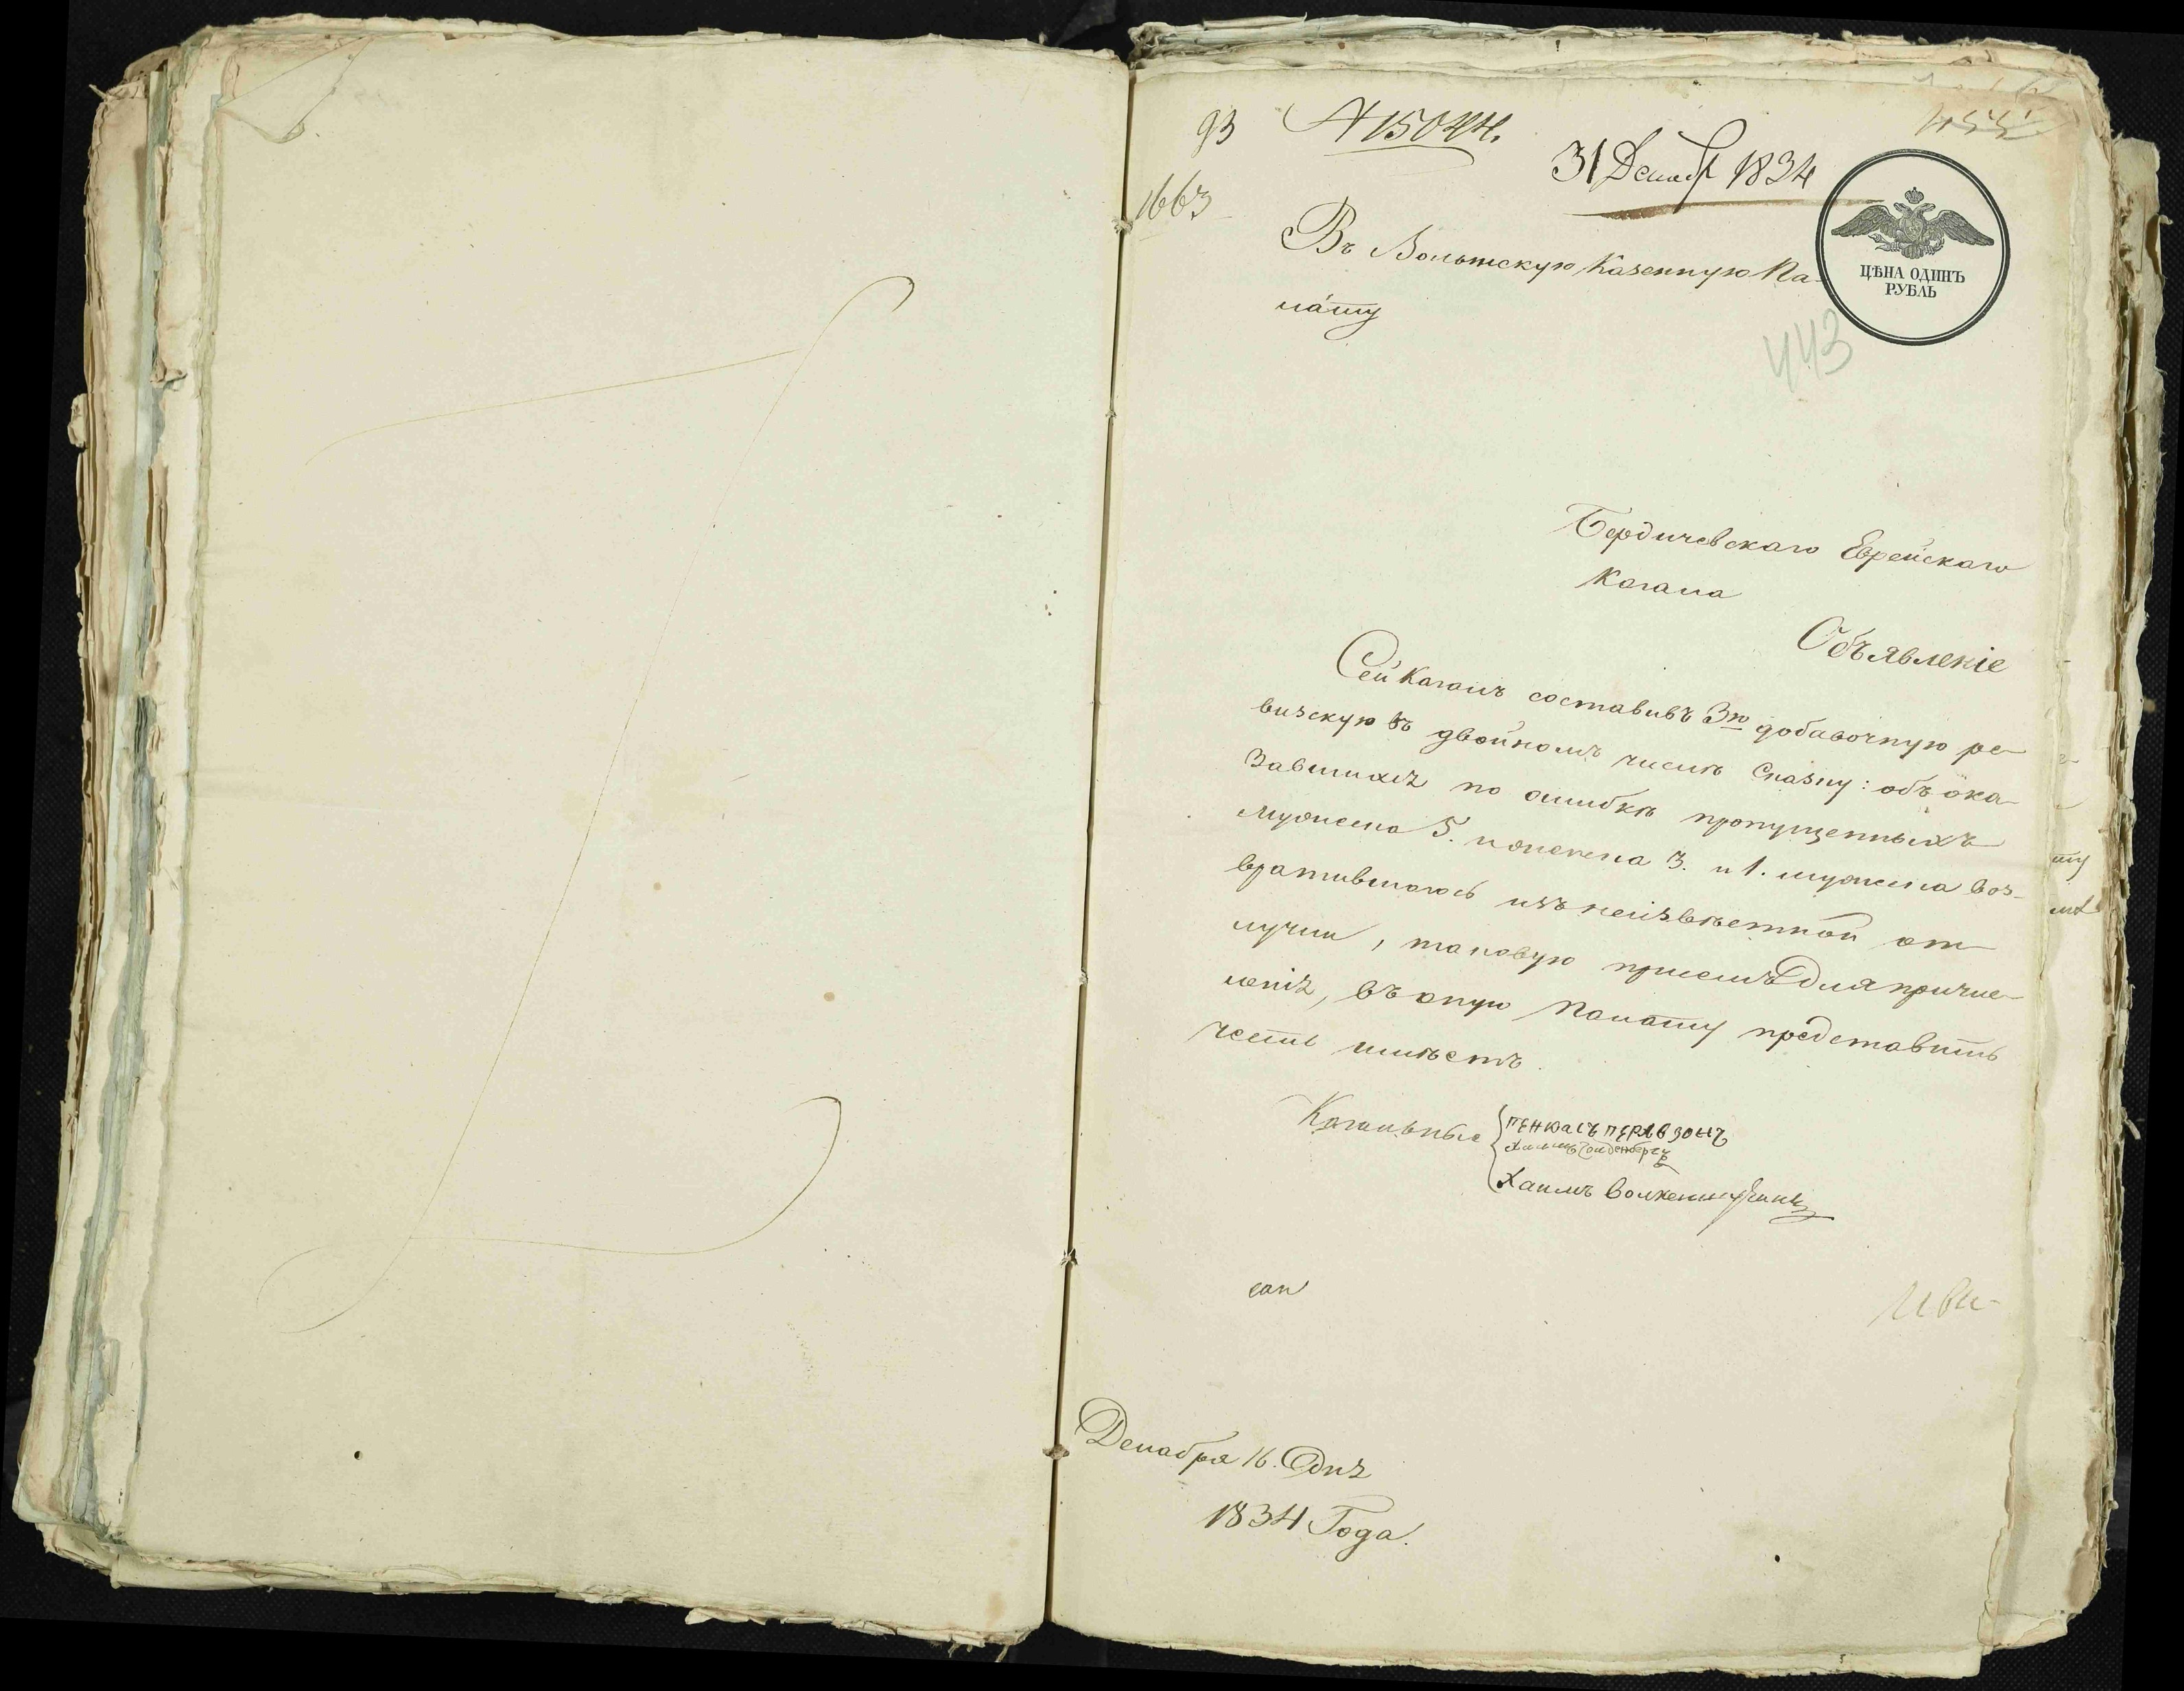 93 № 15044.
455
31 Декабр 1834
1663
Въ Волынскую Казенную Па-
ла́ту
ЦѢНА ОДИНЪ
РУБЛЬ
443
Бердичевскаго Еврейскаго
Кагала
Объявленіе
Сей Кагалъ составивъ 3ю добавочную ре-
визскую въ двойномъ числѣ Сказку: объ ока-
завшихъ по ошибкѣ пропущенныхъ
мужеска 5. и женска 3. и 1. мужеска воз-
вратившагось изъ неизвѣстной от-
лучки, таковую присемъ для причис-
ленія, въ оную Палату представить
честь имѣетъ.
Кагальные
ПЕНКАСЪ ПЕРЛЬЗОНЪ
Хаимъ Голденбергъ
Хаимъ Волкенштейнъ
Декабря 16. Дня
1834 Года.